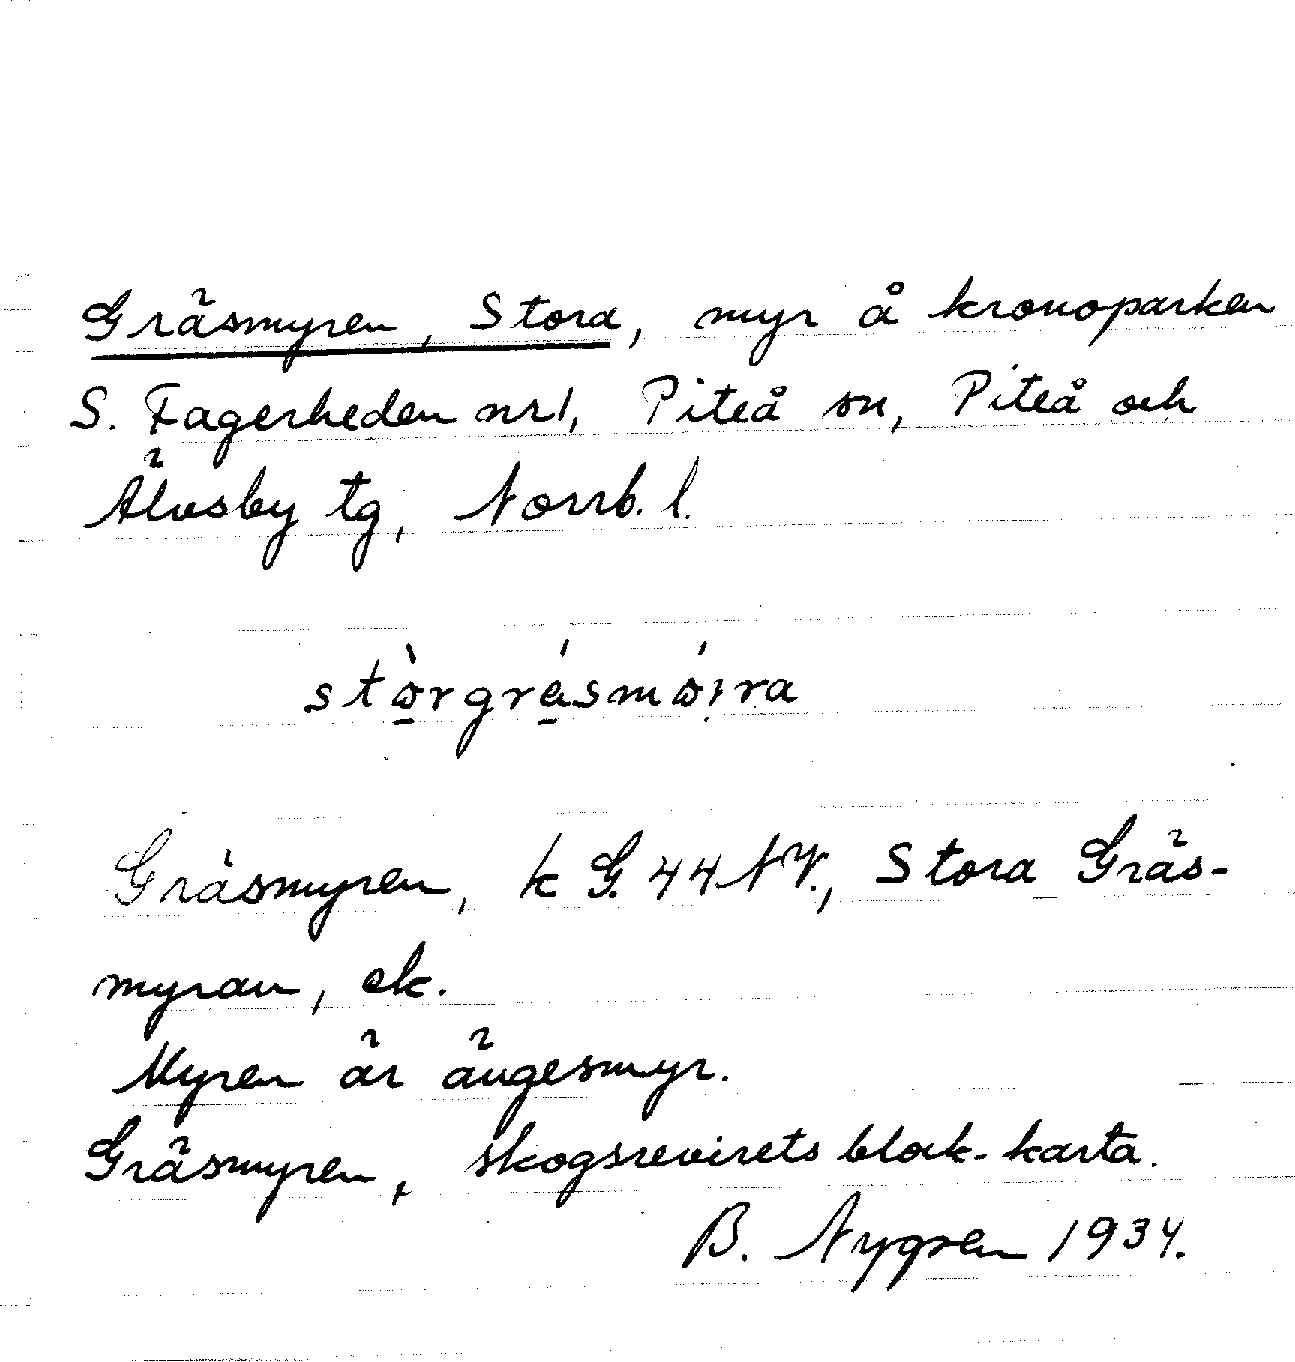 Gräsmyren, Stora, myr å kronoparken
S. Fagerheden nr 1, Piteå sn, Piteå och
Älvsby tg, Norrb. l.
Gräsmyren, k G. 44 NV., Stora Gräs-
myran, ek.
Myren är ängesmyr.
Gräsmyren, skogsrevirets block-karta.
B. Nygren 1934.